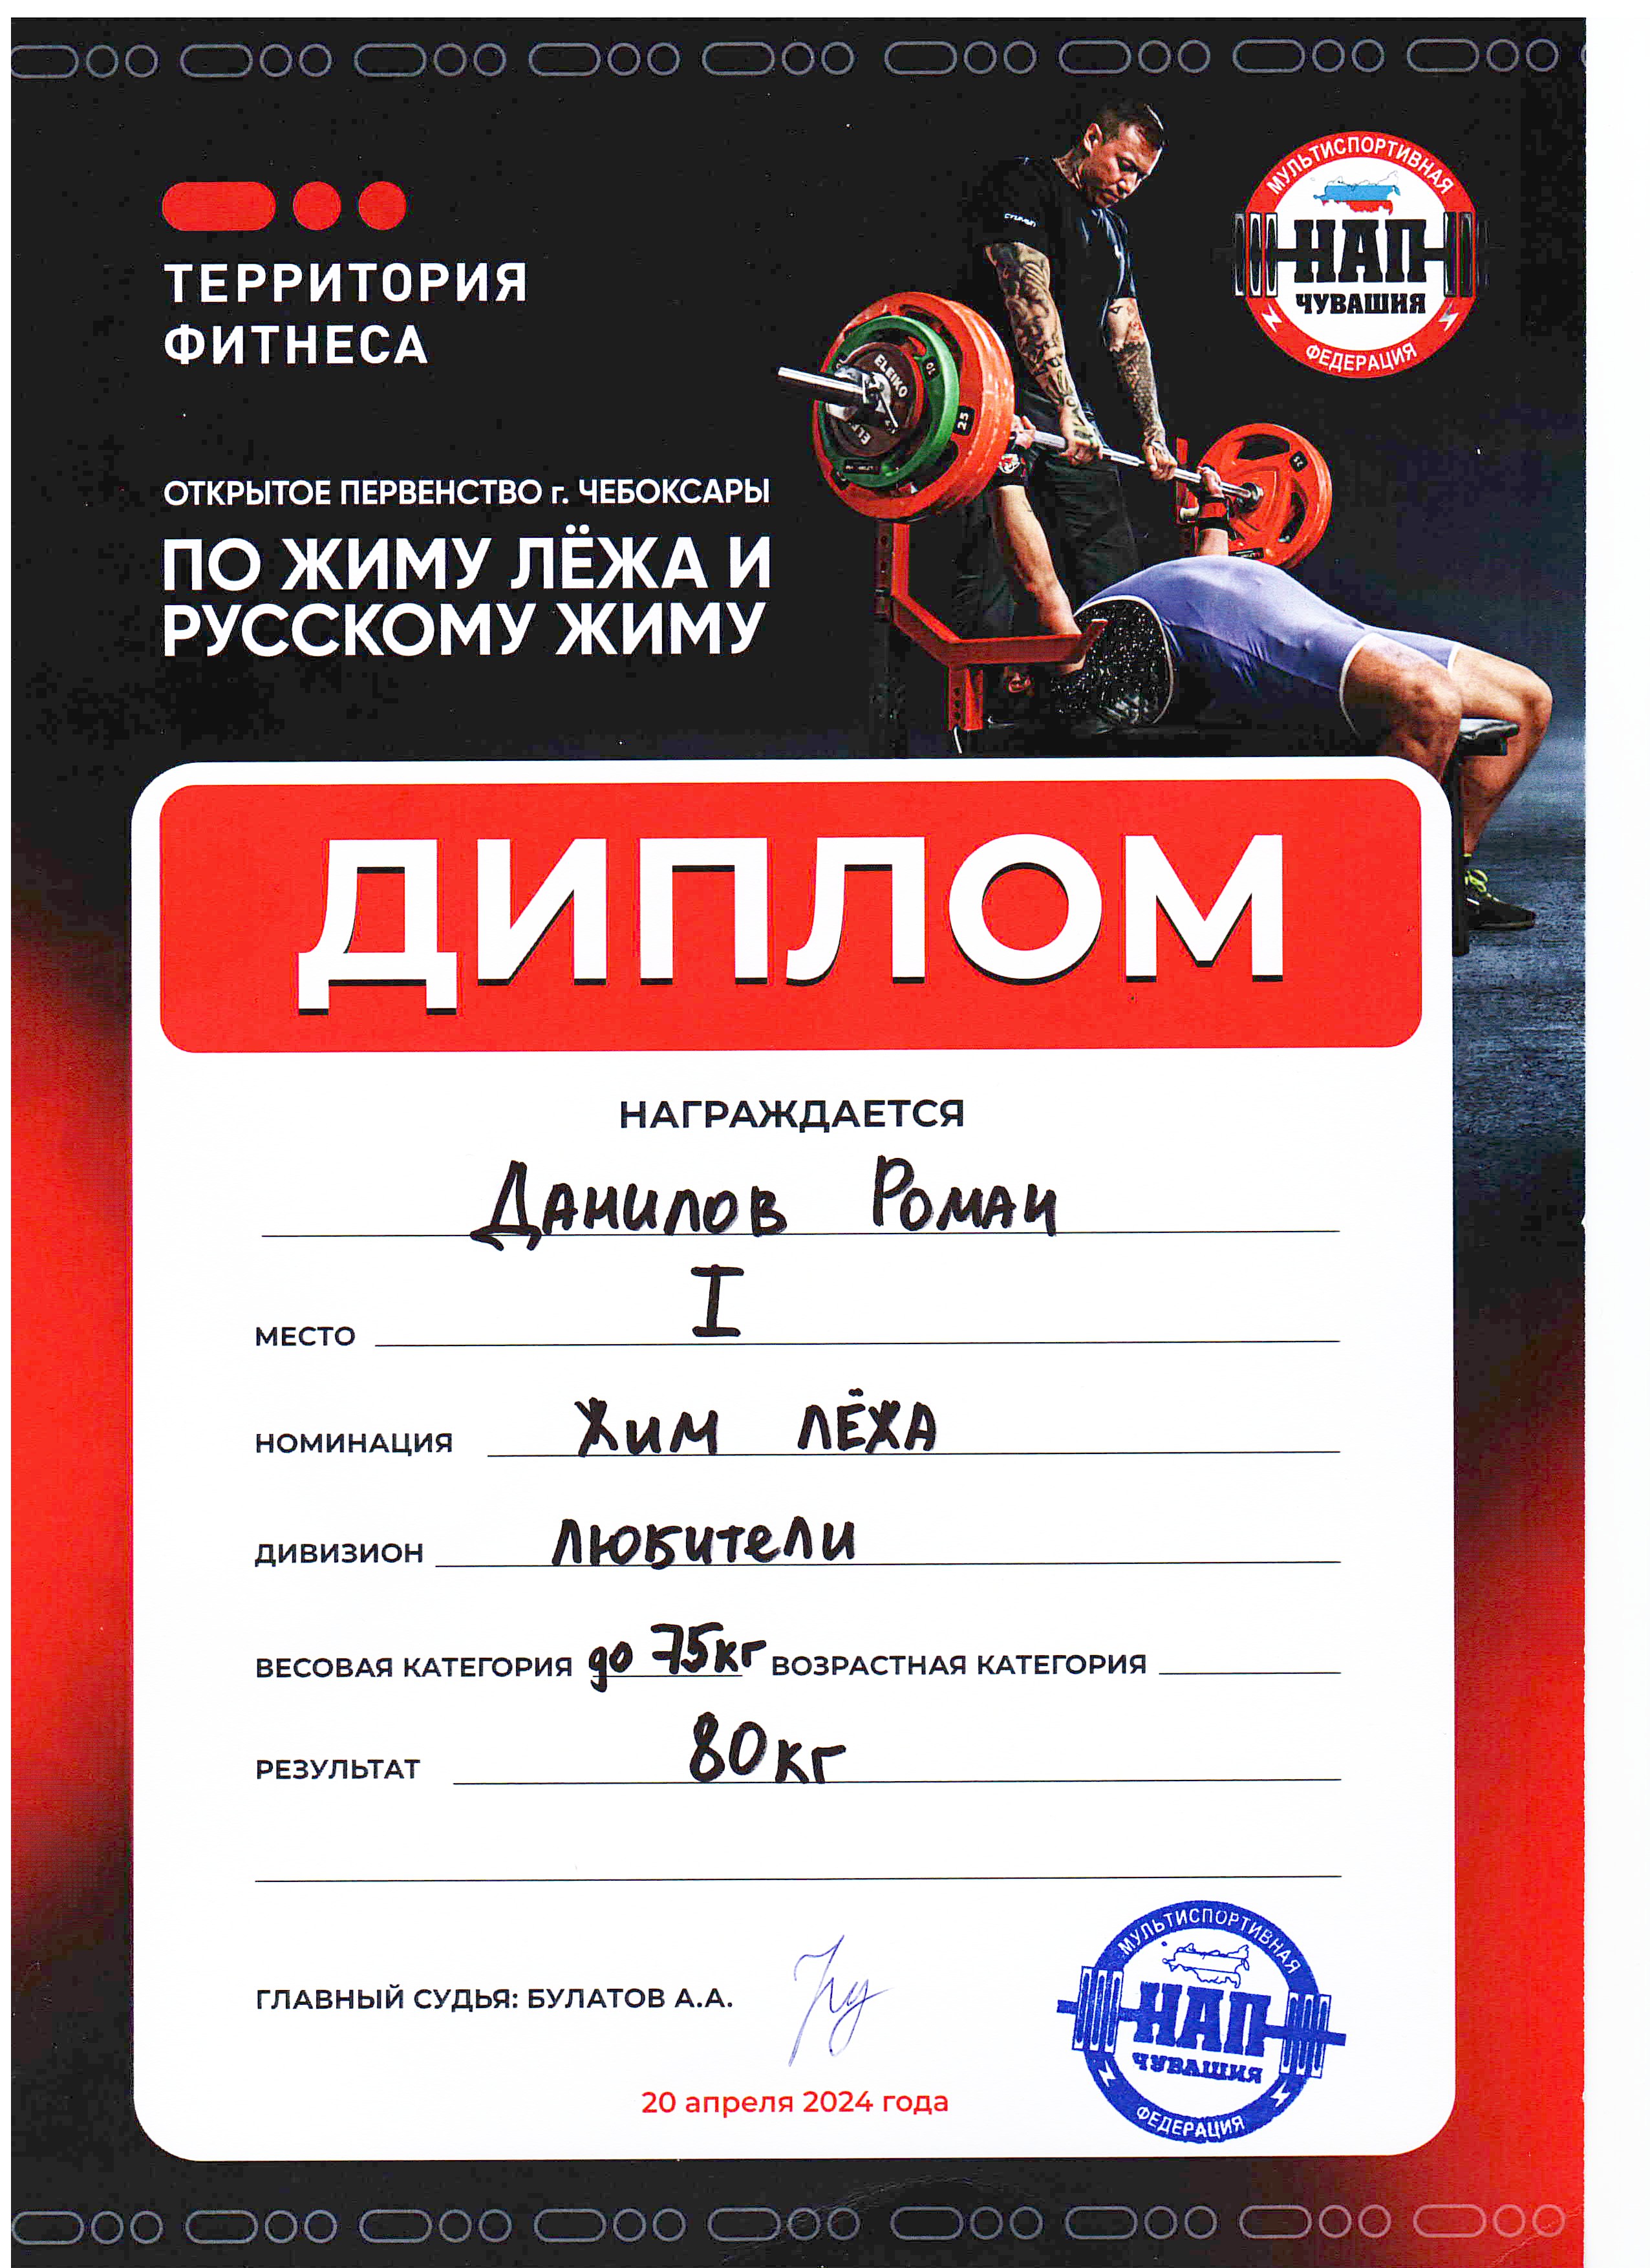 ТЕРРИТОРИЯ
ФИТНЕСА
МУЛЬТИСПОРТИВНАЯ
НАП
ЧУВАШИЯ
ФЕДЕРАЦИЯ
ELEIKO
25
10
ОТКРЫТОЕ ПЕРВЕНСТВО г. ЧЕБОКСАРЫ
ПО ЖИМУ ЛЁЖА И
РУССКОМУ ЖИМУ
ДИПЛОМ
НАГРАЖДАЕТСЯ
Данилов Роман
МЕСТО I
НОМИНАЦИЯ Жим лёжа
ДИВИЗИОН Любители
ВЕСОВАЯ КАТЕГОРИЯ до 75кг ВОЗРАСТНАЯ КАТЕГОРИЯ
РЕЗУЛЬТАТ 80кг
ГЛАВНЫЙ СУДЬЯ: БУЛАТОВ А.А.
20 апреля 2024 года
МУЛЬТИСПОРТИВНАЯ
НАП
ЧУВАШИЯ
ФЕДЕРАЦИЯ